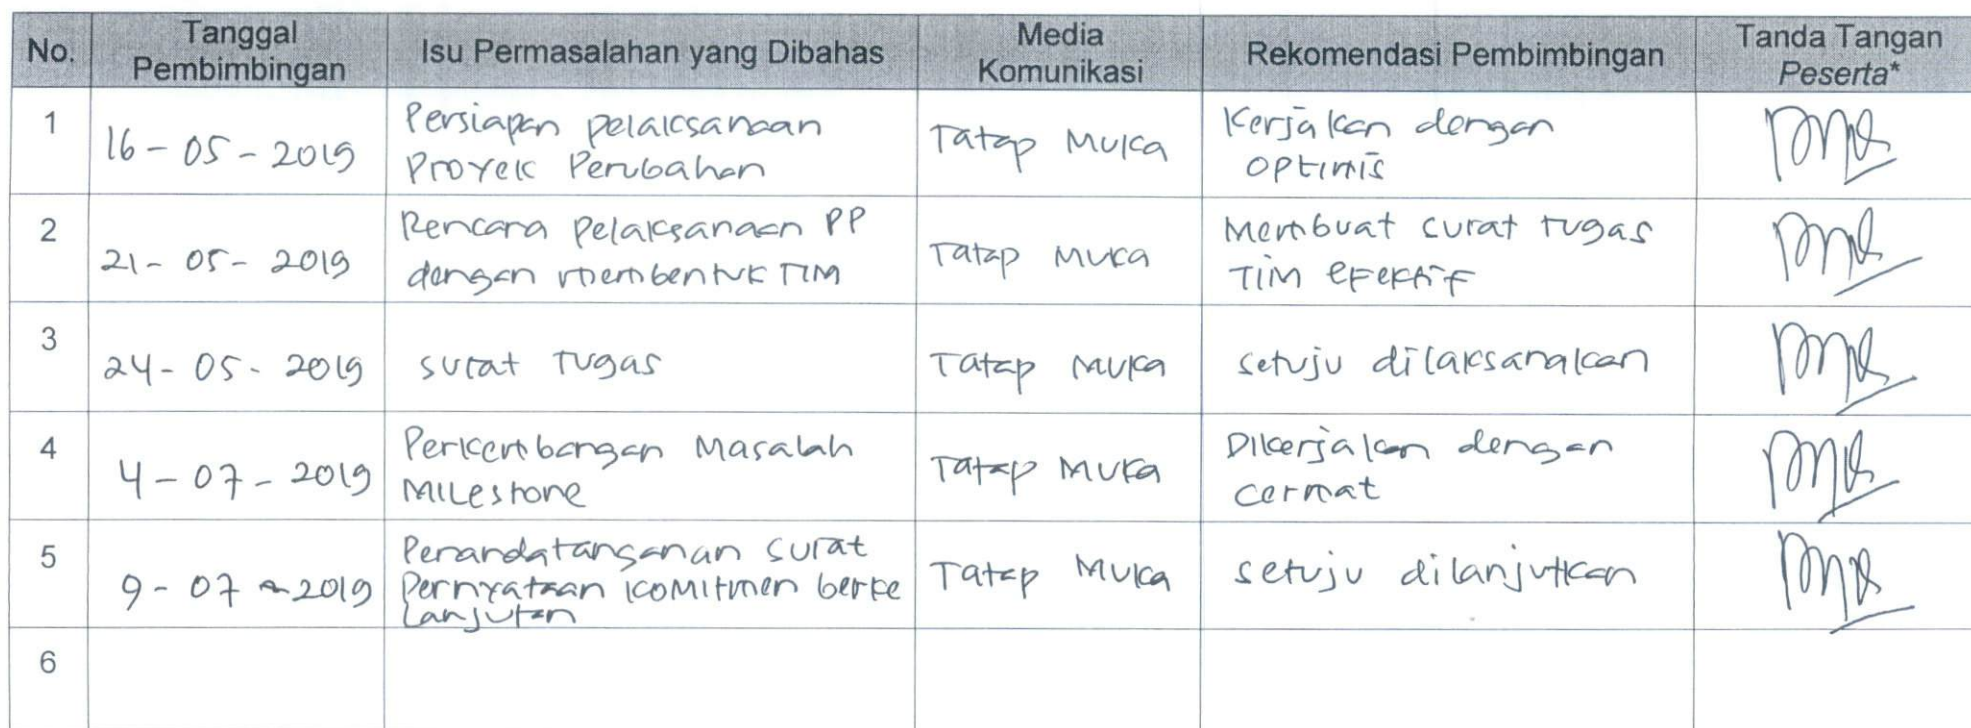 No.
Tanggal
Pembimbingan
Isu Permasalahan yang Dibahas
Media
Komunikasi
Rekomendasi Pembimbingan
Tanda Tangan
Peserta*
1
16 - 05 - 2019
Persiapan pelaksanaan
Proyek Perubahan
Tatap Muka
Kerjakan dengan
optimis
2
21 - 05 - 2019
Rencana Pelaksanaan PP
dengan membentuk TIM
Tatap Muka
Membuat surat tugas
TIM efektif
3
24 - 05 - 2019
surat tugas
Tatap Muka
setuju dilaksanakan
4
4 - 07 - 2019
Perkembangan Masalah
Milestone
Tatap Muka
Dikerjakan dengan
cermat
5
9 - 07 - 2019
Penandatanganan surat
Pernyataan komitmen berke
lanjutan
Tatap Muka
setuju dilanjutkan
6